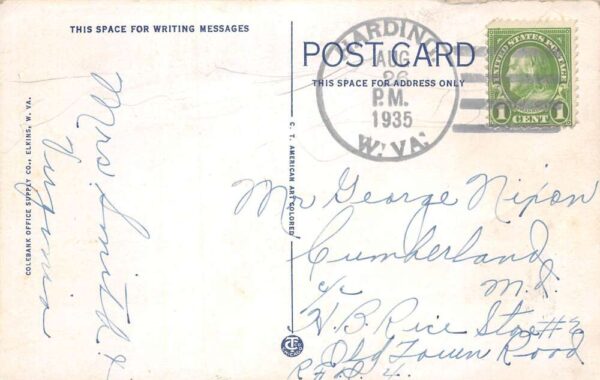 THIS SPACE FOR WRITING MESSAGES
POST CARD
THIS SPACE FOR ADDRESS ONLY
HARDING
AUG
26
P.M.
1935
W. VA.
UNITED STATES POSTAGE
1 CENT 1
COLEBANK OFFICE SUPPLY CO., ELKINS, W. VA.
C. T. AMERICAN ART COLORED
Virginia
Mr George Nixon
Cumberland
c/o Md.
H. B. Rice Store #2
Old Town Road
R.F.D. 4.